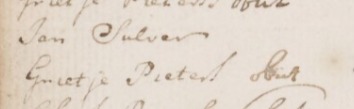 Grietje Pieters obiit
Jan Sulver
Grietje Pieters obiit